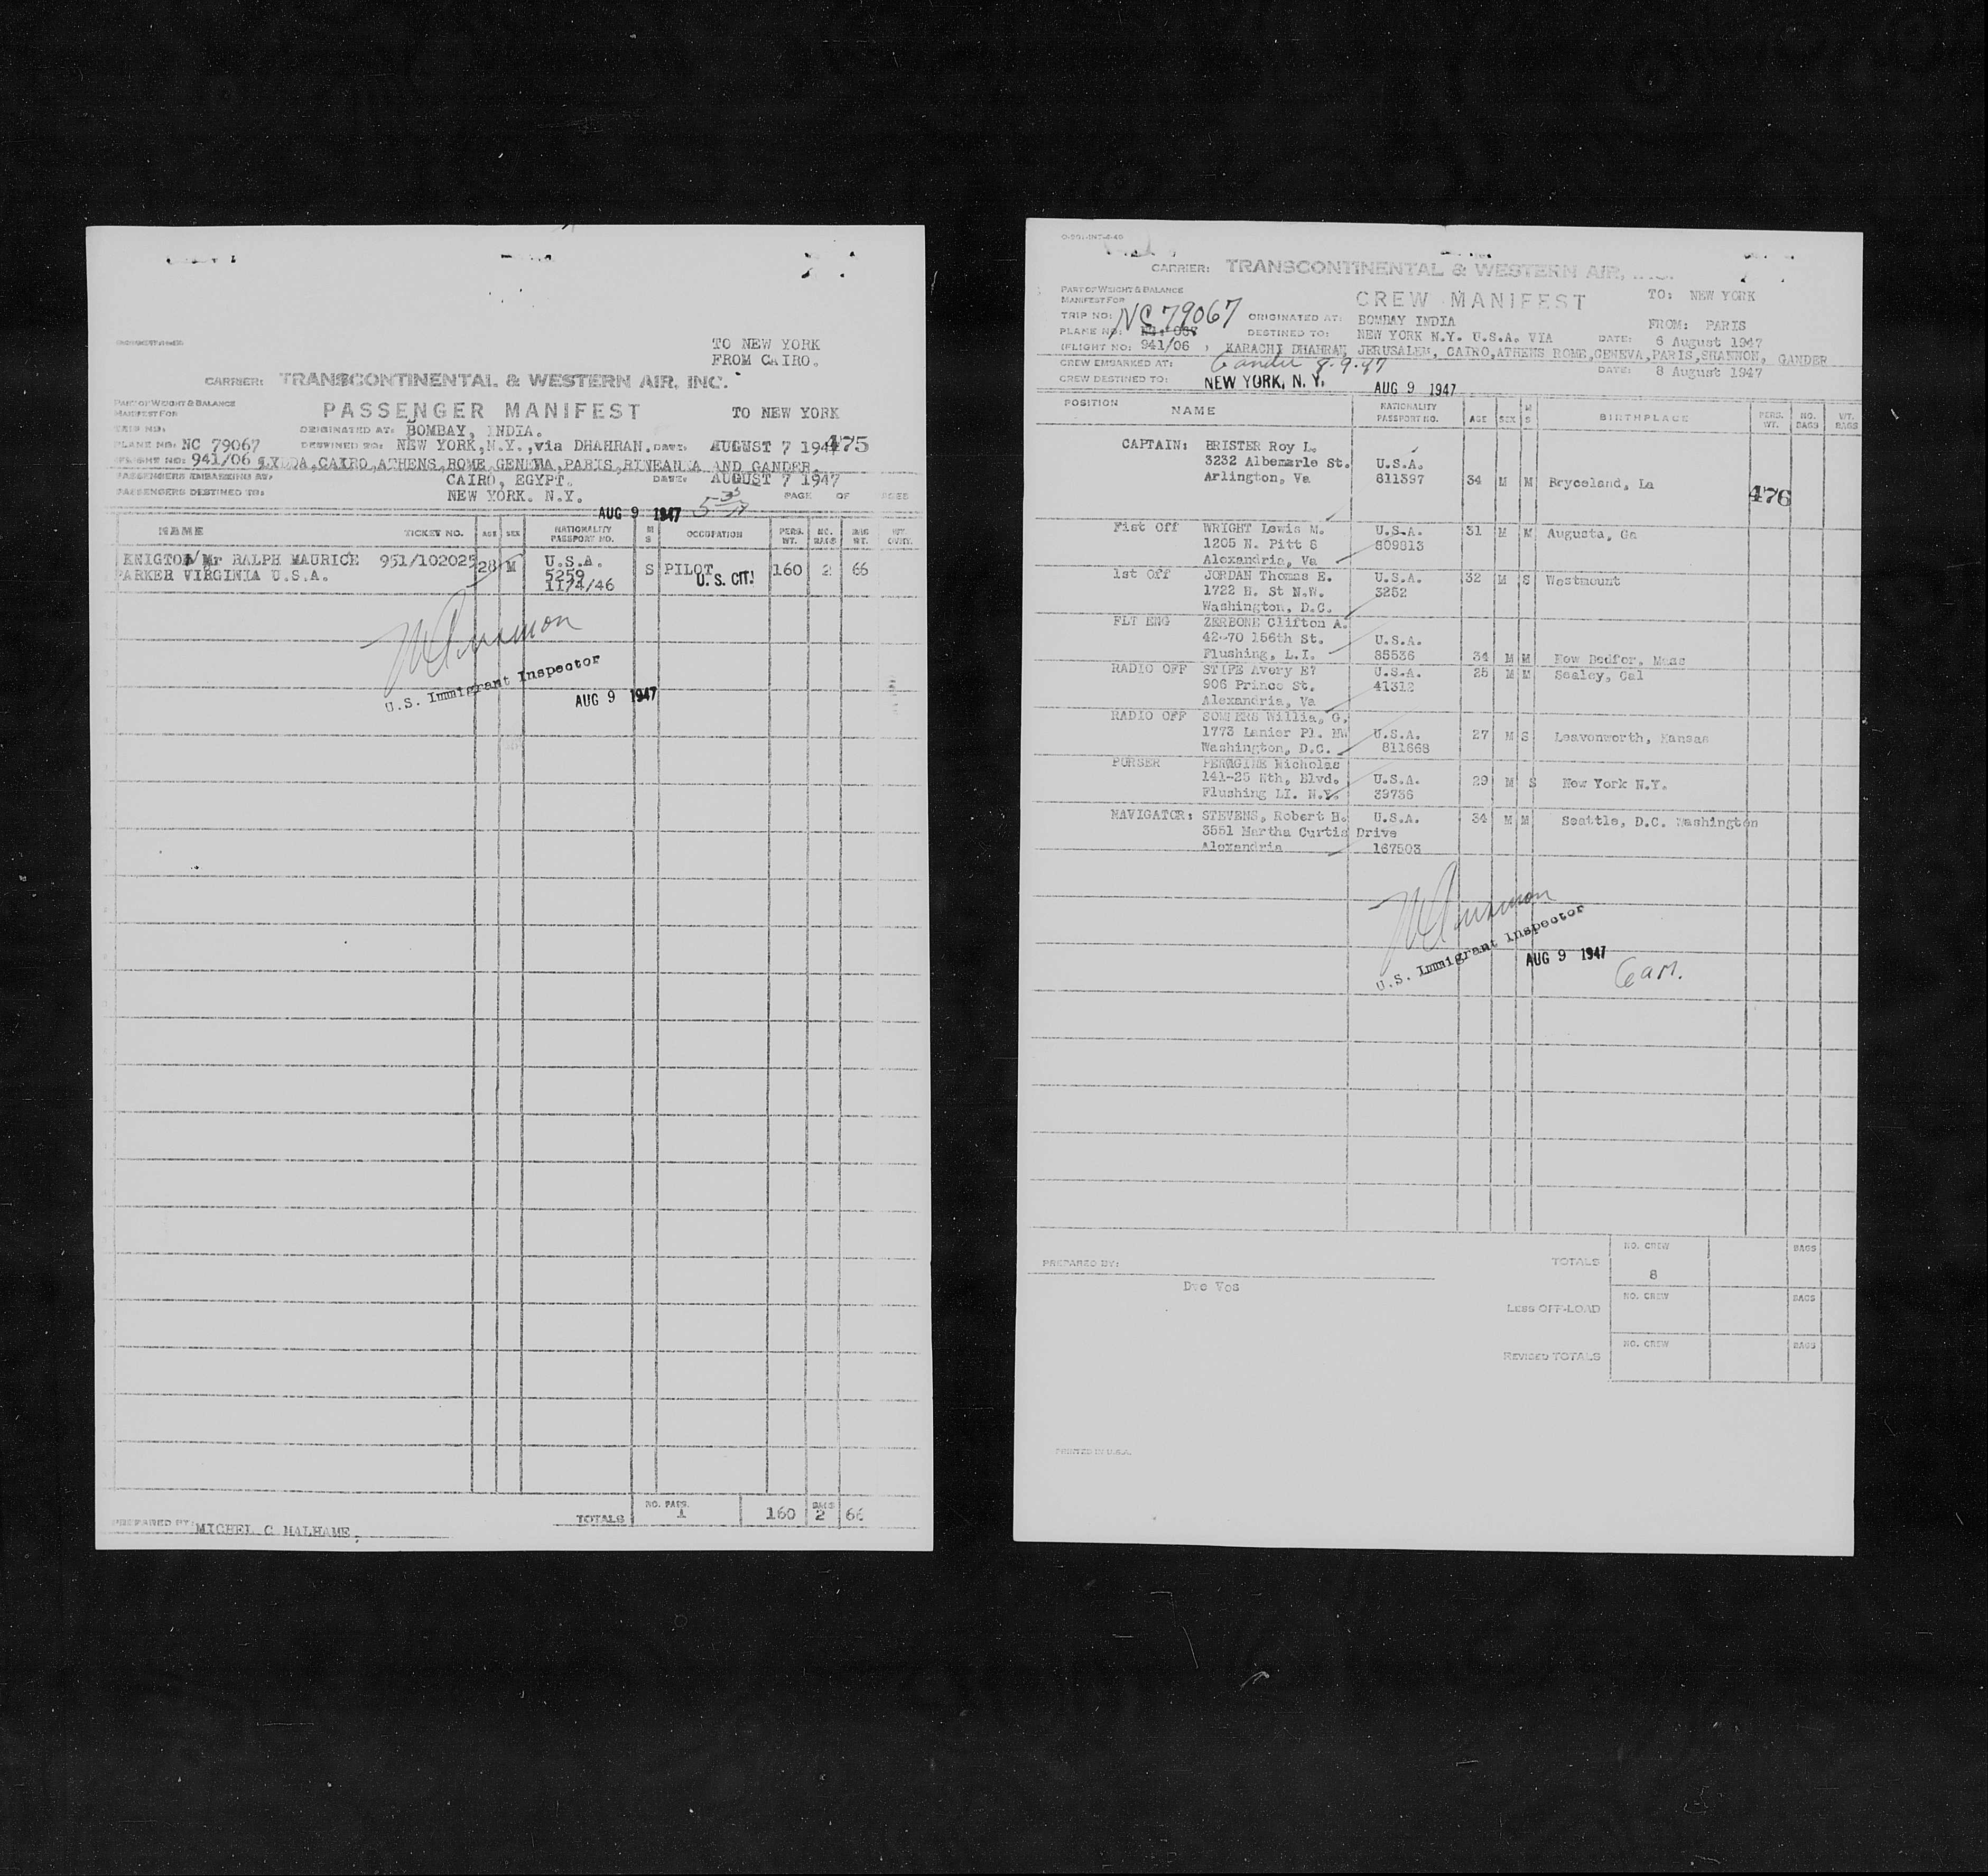 TO NEW YORK
FROM CAIRO.
CARRIER: TRANSCONTINENTAL & WESTERN AIR, INC.
PART OF WEIGHT & BALANCE
MANIFEST FOR
PASSENGER MANIFEST TO NEW YORK
TRIP NO: ORIGINATED AT: BOMBAY, INDIA.
PLANE NO: NC 79067 DESTINED TO: NEW YORK,N.Y.,via DHAHRAN. DATE: AUGUST 7 194 475
FLIGHT NO: 941/06 LYDDA,CAIRO,ATHENS,ROME,GENEVA,PARIS,RINEANNA AND GANDER.
PASSENGERS EMBARKING AT: CAIRO, EGYPT. DATE: AUGUST 7 1947
PASSENGERS DESTINED TO: NEW YORK. N.Y. PAGE OF
AUG 9 1947
NAME TICKET NO. AGE SEX NATIONALITY PASSPORT NO. M S OCCUPATION PERS. WT. NO. BAGS BAG WT.
KNIGTON Mr RALPH MAURICE 951/102025 28 M U.S.A. S PILOT 160 2 66
PARKER VIRGINIA U.S.A. 5259 U.S. CIT.
1174/46
U.S. Immigrant Inspector
AUG 9 1947
TOTALS NO. PASS. 1 160 BAGS 2 66
PREPARED BY: MICHEL C MALHAME.
CARRIER: TRANSCONTINENTAL & WESTERN AIR, INC.
PART OF WEIGHT & BALANCE
MANIFEST FOR
CREW MANIFEST TO: NEW YORK
TRIP NO: NC 79067 ORIGINATED AT: BOMBAY INDIA FROM: PARIS
PLANE NO: DESTINED TO: NEW YORK N.Y. U.S.A. VIA DATE: 6 August 1947
(FLIGHT NO: 941/06 , KARACHI DHAHRAN, JERUSALEM, CAIRO,ATHENS ROME,GENEVA,PARIS,SHANNON, GANDER
CREW EMBARKED AT: Gander 8.9.47 DATE: 8 August 1947
CREW DESTINED TO: NEW YORK, N. Y. AUG 9 1947
POSITION NAME NATIONALITY PASSPORT NO. AGE SEX M S BIRTHPLACE PERS. WT. NO. BAGS WT. BAGS
CAPTAIN: BRISTER Roy L.
3232 Albemarle St. U.S.A.
Arlington, Va 811397 34 M M Bryceland, La 476
Fist Off WRIGHT Lewis M. U.S.A. 31 M M Augusta, Ga
1205 N. Pitt S 809813
Alexandria, Va
1st Off JORDAN Thomas E. U.S.A. 32 M S Westmount
1722 H. St N.W. 3252
Washington, D.C.
FLT ENG ZERBONE Clifton A.
42-70 156th St. U.S.A.
Flushing, L.I. 85536 34 M M New Bedfor, Mass
RADIO OFF STIPE Avery E? U.S.A. 25 M M Sealey, Cal
906 Prince St. 41312
Alexandria, Va
RADIO OFF SOMERS Willia, G.
1773 Lanier Pl. NW U.S.A. 27 M S Leavonworth, Kansas
Washington, D.C. 811668
PURSER PERAGINE Nicholas
141-25 Nth, Blvd. U.S.A. 29 M S New York N.Y.
Flushing LI. N.Y. 39736
NAVIGATOR: STEVENS, Robert H. U.S.A. 34 M M Seattle, D.C. Washington
3551 Martha Curtis Drive
Alexandria 167503
U.S. Immigrant Inspector
AUG 9 1947
6 am.
TOTALS NO. CREW 8 BAGS
PREPARED BY:
Dvo Vos
LESS OFF-LOAD NO. CREW BAGS
REVISED TOTALS NO. CREW BAGS
PRINTED IN U.S.A.